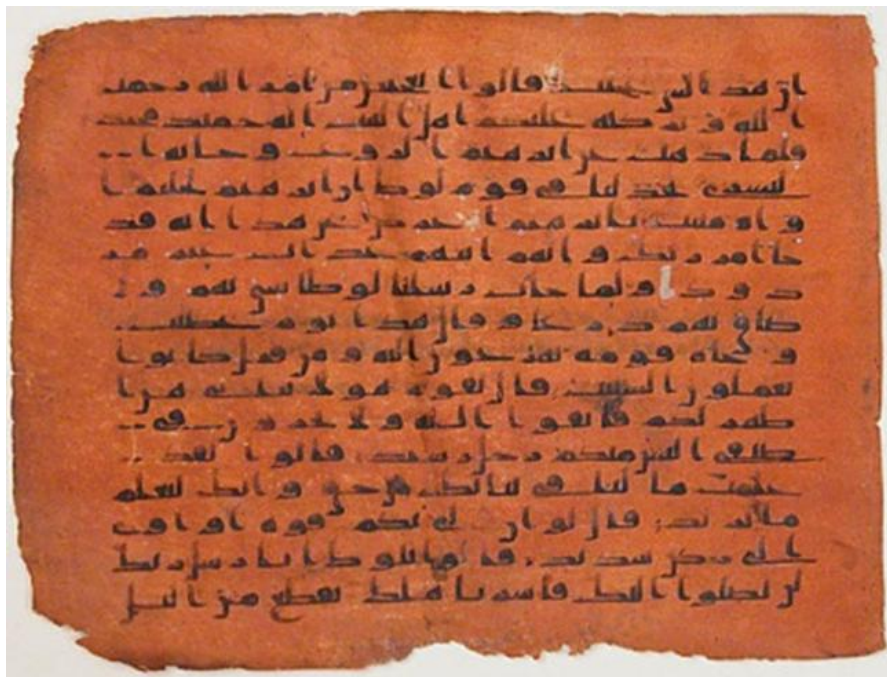 ان هذا لشى عجيب قالوا ا تعجبين من امر الله رحمت
الله وبركته عليكم اهل البيت انه حميد مجيد
فلما ذهب عن ابرهيم الروع وجاته ا
لبشرى يجدلنا فى قوم لوط ان ابرهيم لحليم ا
واه منيب يابرهيم اعرض عن هذا انه قد
جا امر ربك وانهم اتيهم عذاب غير مر
دود ولما جات رسلنا لوطا سى بهم و
ضاق بهم ذرعا وقال هذا يوم عصيب
وجاه قومه يهرعون اليه ومن قبل كانوا
يعملون السيت قال يقوم هولا بناتى هن ا
طهر لكم فاتقوا الله ولا تخزون فى
ضيفى اليس منكم رجل رشيد قالوا لقد
علمت ما لنا فى بناتك من حق وانك لتعلم
ما نريد قال لو ان لى بكم قوه او اوى
الى ركن شديد قالوا يلوط انا رسل ربك
لن يصلوا اليك فاسر باهلك بقطع من اليل